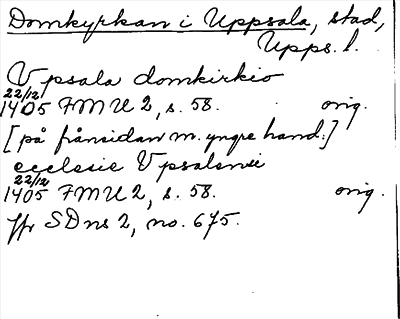 Domkyrkan i Uppsala, stad,
Upps. l.
Vpsala domkirkio
22/12
1405 FMU 2, s. 58. orig.
[på frånsidan m. yngre hand:]
ecclesie Vpsalensis
22/12
1405 FMU 2, s. 58. orig.
Jfr SDns 2, no. 675.